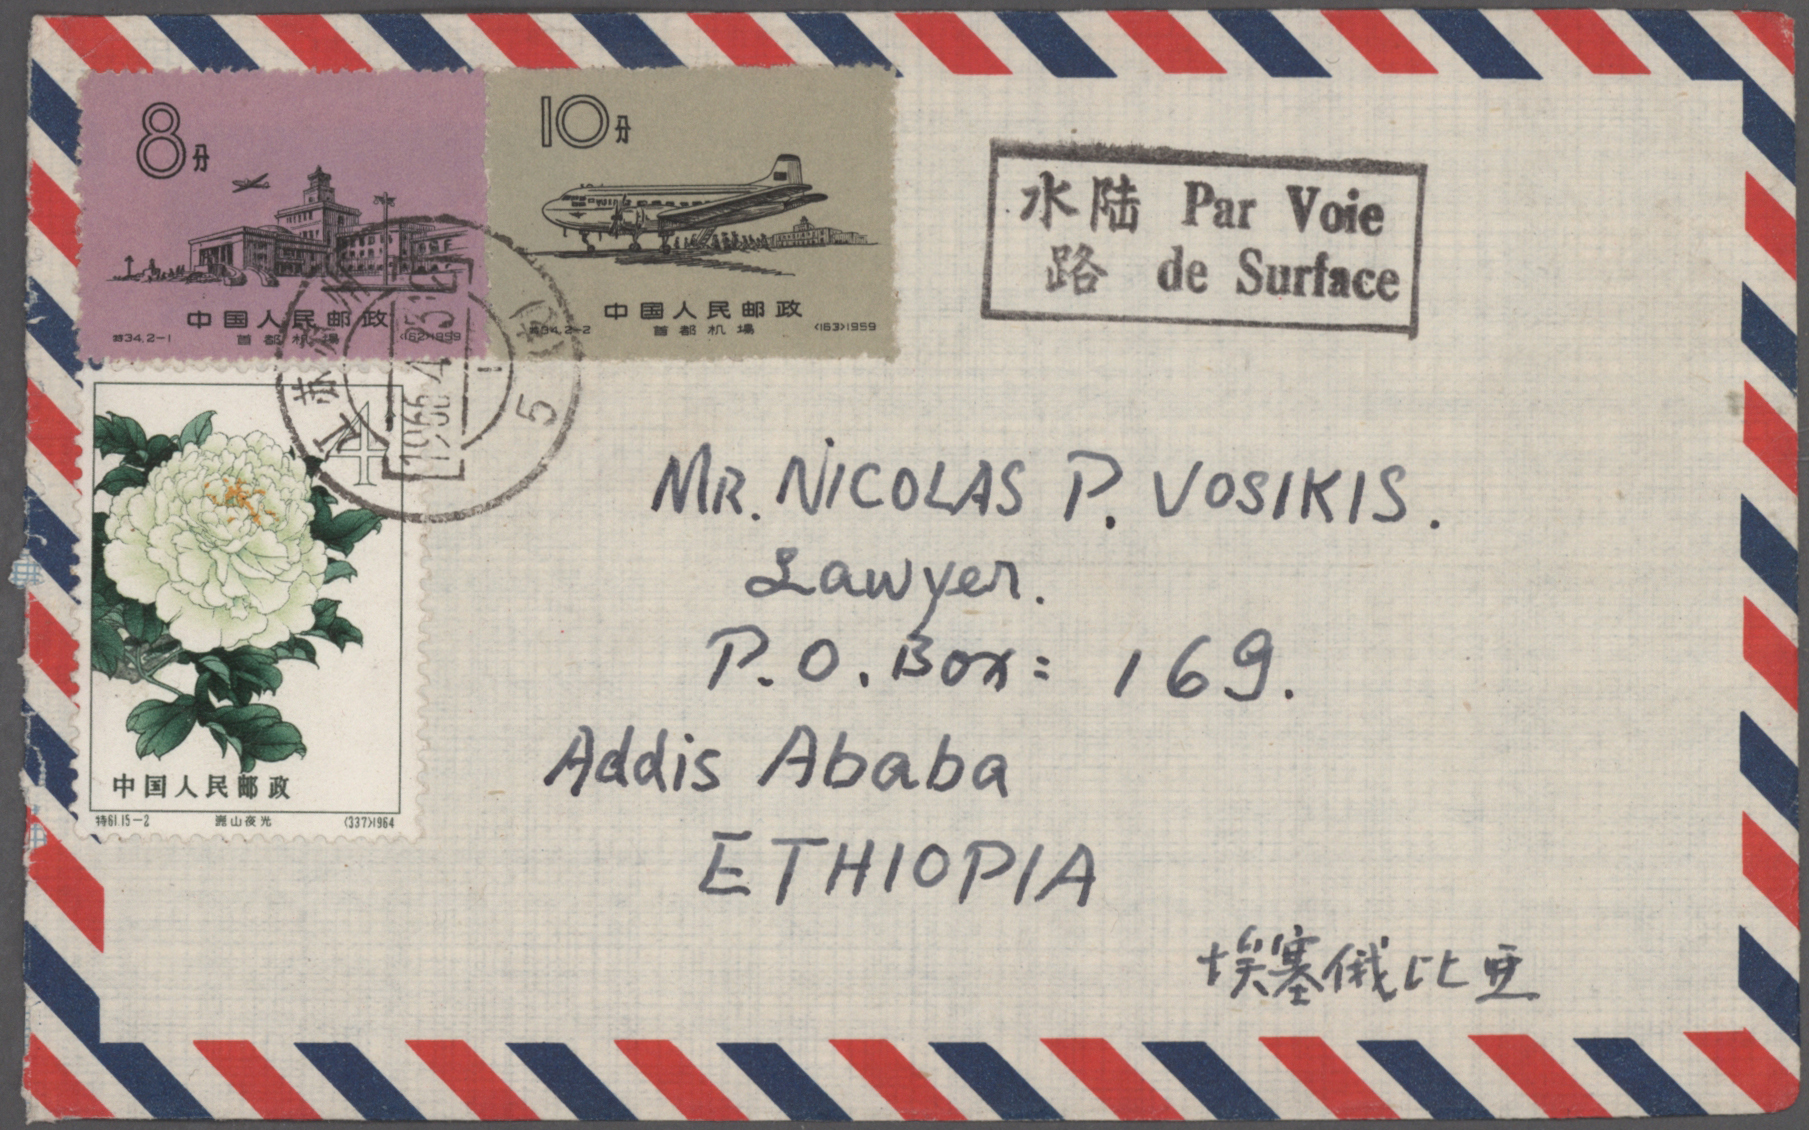 8分
中国人民邮政
特34.2-1 首都机場 (162)1959
10分
中国人民邮政
特34.2-2 首都机場 (163)1959
水陆 Par Voie
路 de Surface
江苏
1966.4
5
4
中国人民邮政
特61.15-2 崑山夜光 (337)1964
MR. NICOLAS P. VOSIKIS.
Lawyer.
P.O. Box: 169.
Addis Ababa
ETHIOPIA
埃塞俄比亚